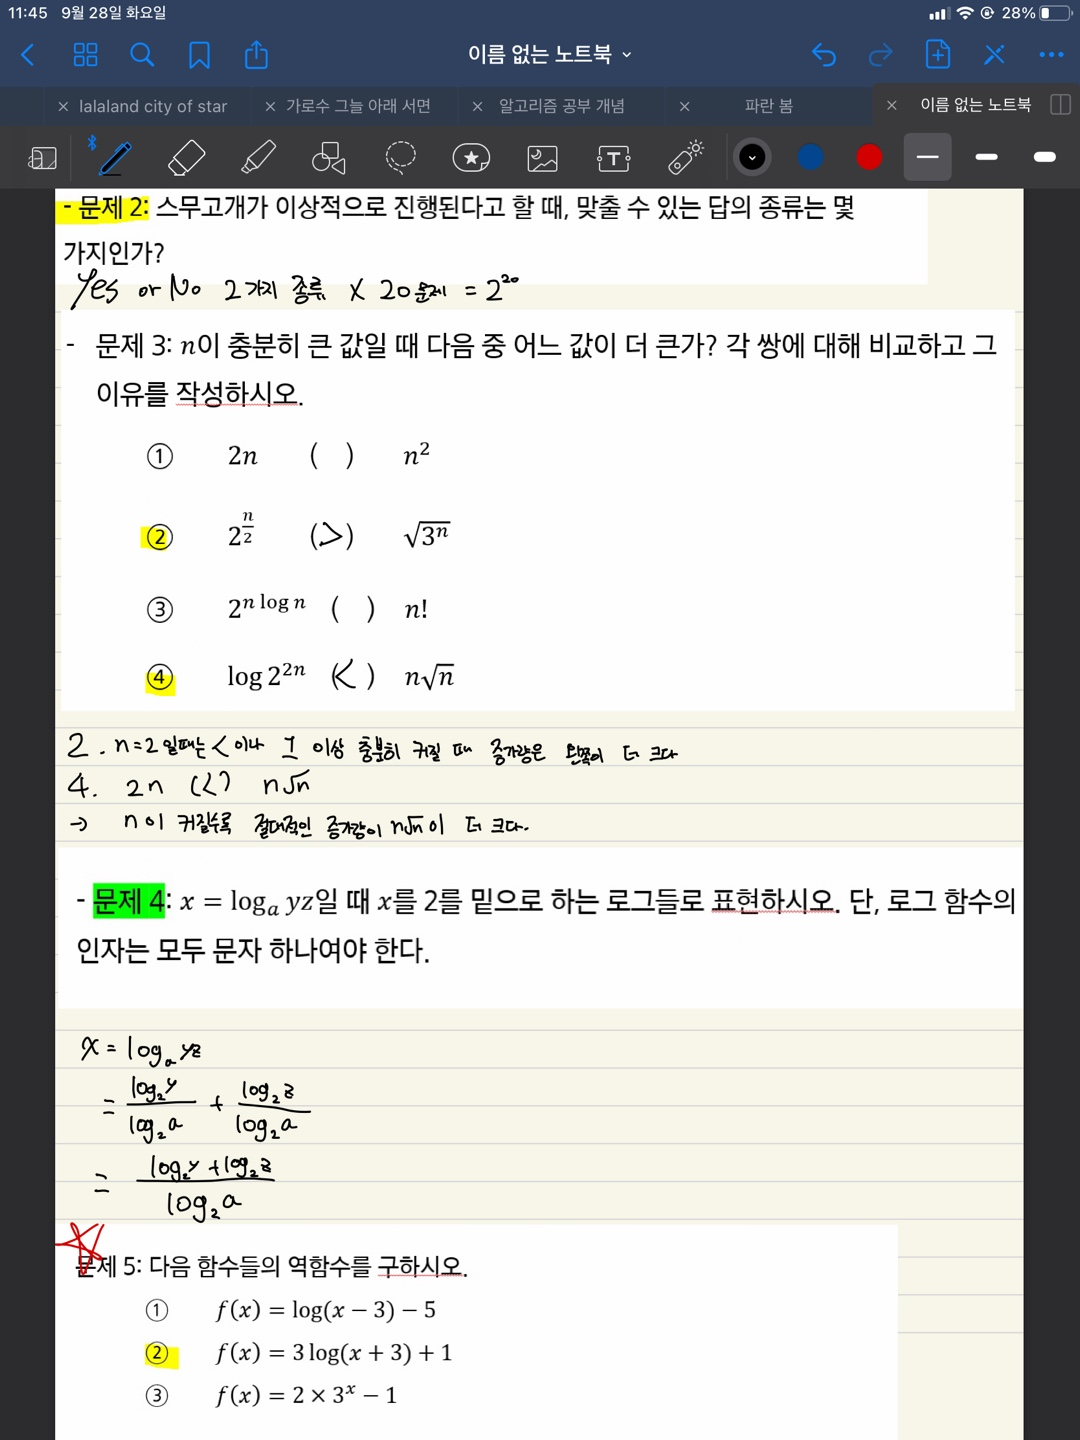 11:45 9월 28일 화요일 28%
이름 없는 노트북
lalaland city of star 가로수 그늘 아래 서면 알고리즘 공부 개념 파란 봄 이름 없는 노트북
- 문제 2: 스무고개가 이상적으로 진행된다고 할 때, 맞출 수 있는 답의 종류는 몇
가지인가?
Yes or No 2가지 종류 × 20문제 = 2²⁰
- 문제 3: n이 충분히 큰 값일 때 다음 중 어느 값이 더 큰가? 각 쌍에 대해 비교하고 그
이유를 작성하시오.
① 2n ( ) n²
② 2^(n/2) (>) √(3ⁿ)
③ 2^(n log n) ( ) n!
④ log 2²ⁿ (<) n√n
2. n=2일때는 < 이나 그 이상 충분히 커질 때 증가량은 왼쪽이 더 크다
4. 2n (<) n√n
→ n이 커질수록 절대적인 증가량이 n√n이 더 크다.
- 문제 4: x = logₐ yz일 때 x를 2를 밑으로 하는 로그들로 표현하시오. 단, 로그 함수의
인자는 모두 문자 하나여야 한다.
x = logₐ yz
= log₂y / log₂a + log₂z / log₂a
= (log₂y + log₂z) / log₂a
문제 5: 다음 함수들의 역함수를 구하시오.
① f(x) = log(x − 3) − 5
② f(x) = 3 log(x + 3) + 1
③ f(x) = 2 × 3ˣ − 1